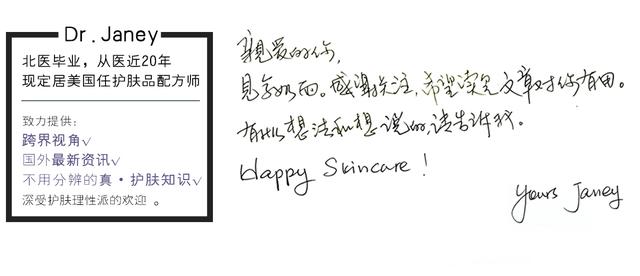 Dr. Janey
北医毕业，从医近20年
现定居美国任护肤品配方师
致力提供：
跨界视角✓
国外最新资讯✓
不用分辨的真·护肤知识✓
深受护肤理性派的欢迎 。
亲爱的你，
见字如面。感谢关注，希望读完文章对你有用。
有什么想法和想说的，请告诉我。
Happy Skincare！
Yours Janey